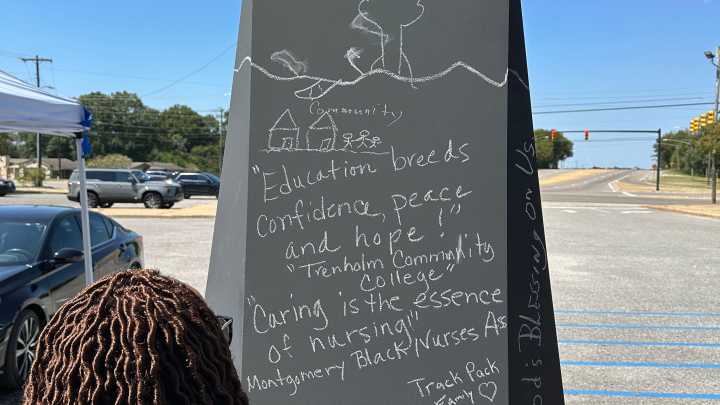 Community
"Education breeds
Confidence, peace
and hope!"
"Trenholm Community
College"
"Caring is the essence
of nursing"
Montgomery Black/Nurses Ass
Track Pack
Family ♡
od's Blessing on Us